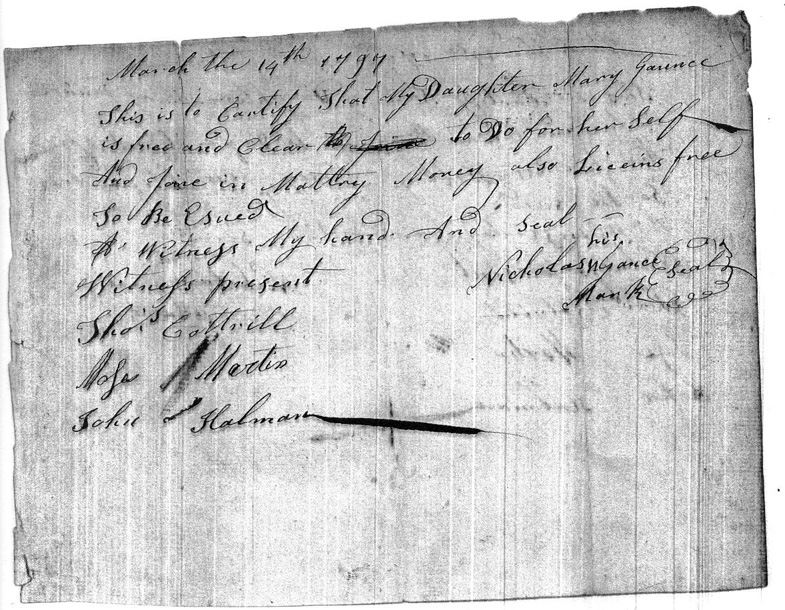 March the 14th 1797
This is to Cartify That My Daughter Mary Gaunce
is free and Clear to Do for her Self
And Jine in Mattry Money also Liceins free
To Be Esued
As Witness My hand And Seal
his
Nicholas N Gance Seal
Mark
Witness present
Thos Cottrill
Mose Martin
John Halman